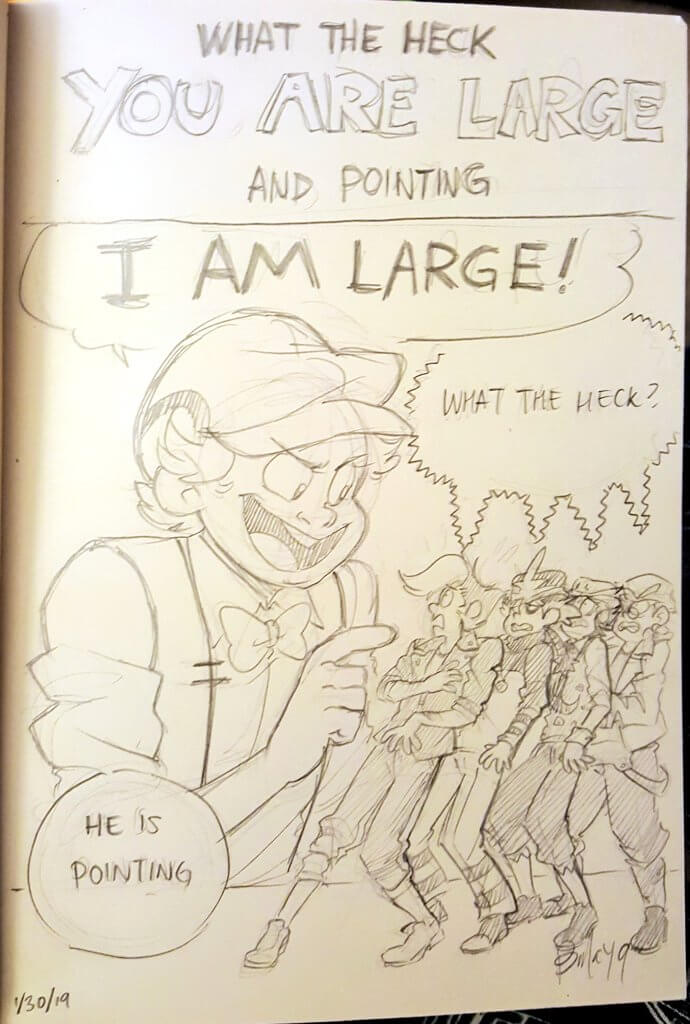 WHAT THE HECK
YOU ARE LARGE
AND POINTING
I AM LARGE!
WHAT THE HECK?
HE IS
POINTING
1/30/19